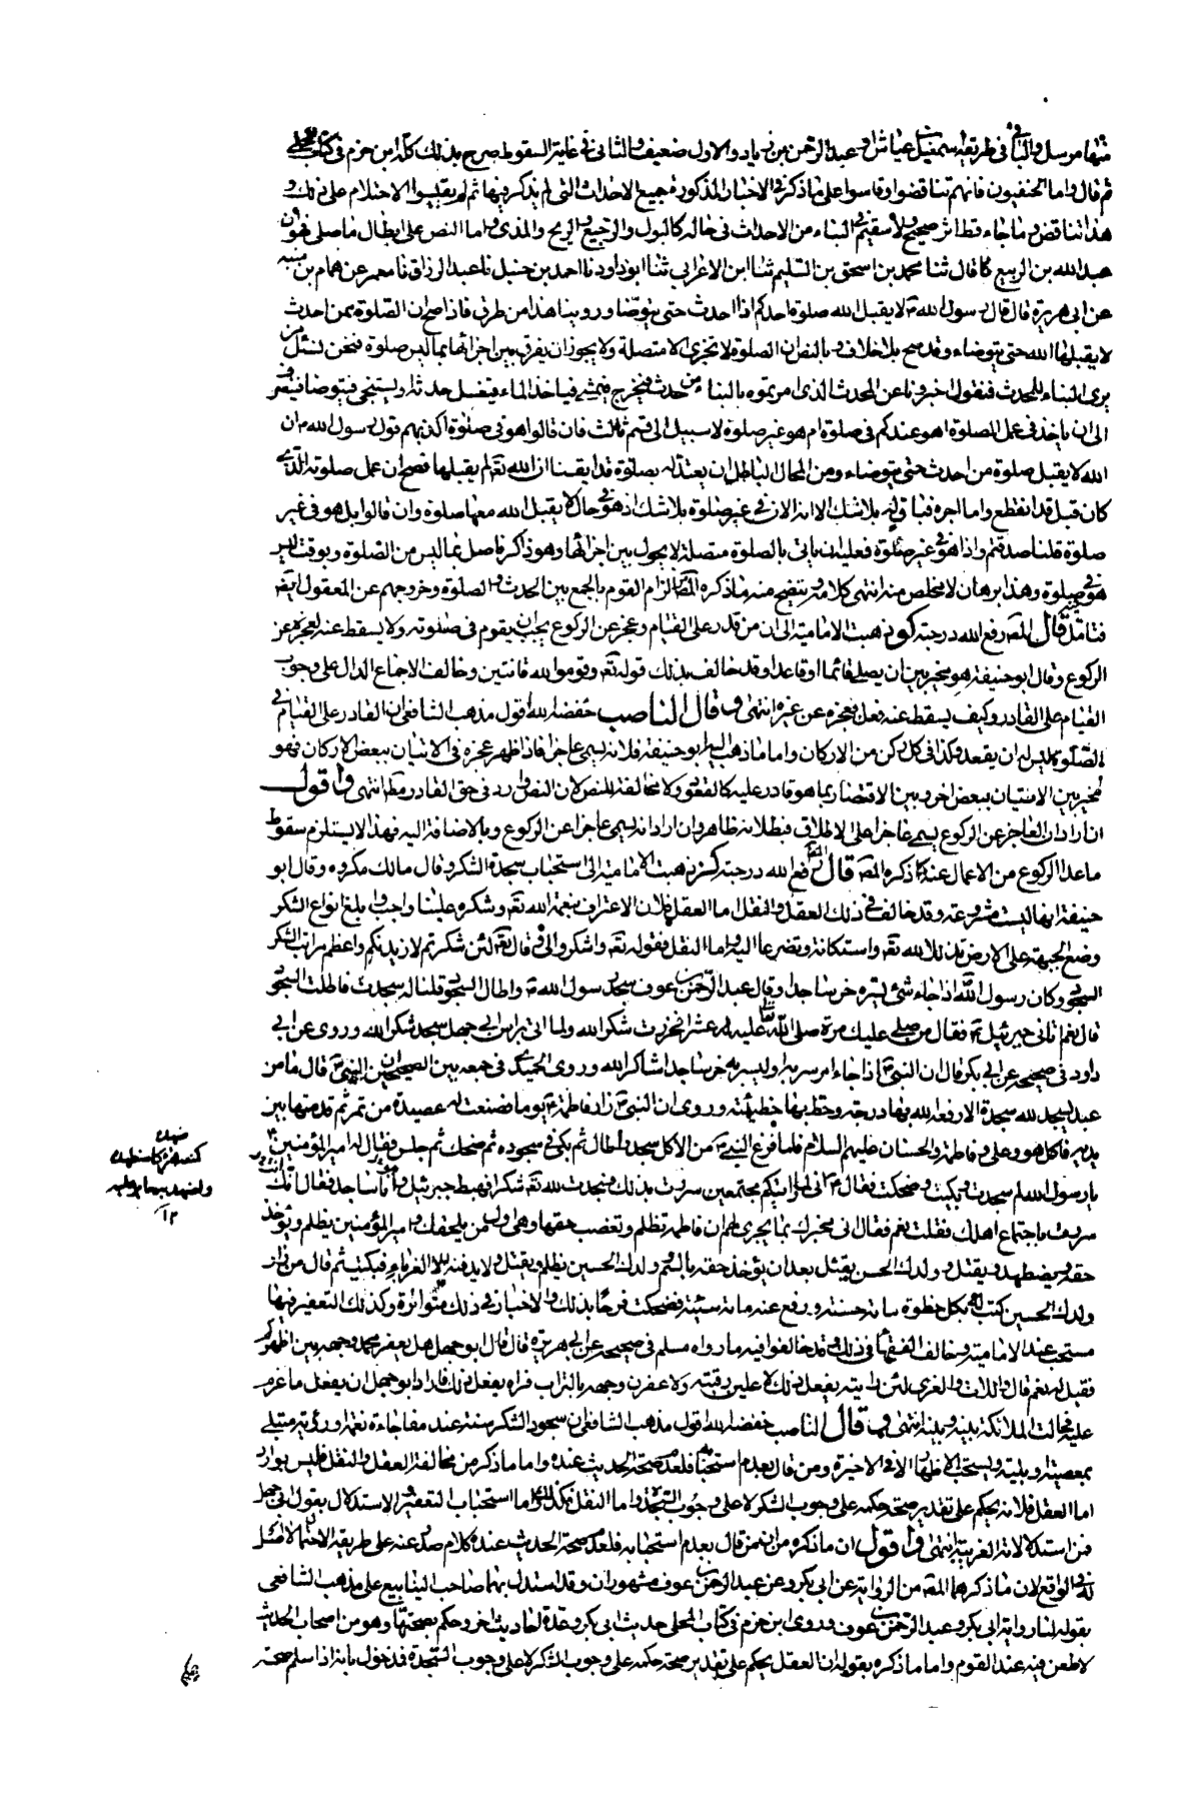 منها مرسل والباقي في طريقه اسمعيل بن عياش او عبد الرحمن بن زياد والاول ضعيف والثاني في غاية السقوط صرح بذلك كله ابن حزم في كتاب المحلى
ثم قال واما الحنفيون فانهم تناقضوا وقاسوا على ما ذكر في الاخبار المذكورة جميع الاحداث التي لم يذكر فيها ثم لم يقيسوا الاحتلام على ذلك و
هذا تناقض وما جاء قط اثر صحيح ولا سقيم في البناء من الاحداث في حاله كالبول والرجيع والريح والمذي واما النص على ابطال ما صلى فهو ان
عبد الله بن الربيع كما قال ثنا محمد بن اسحق بن السليم ثنا ابن الاعرابي ثنا ابو داود نا احمد بن حنبل نا عبد الرزاق نا معمر عن همام بن منبه
عن ابي هريرة قال قال رسول الله ص لا يقبل الله صلوة احدكم اذا احدث حتى يتوضا وروينا هذا من طرق فاذا صح ان الصلوة ممن احدث
لا يقبلها الله حتى يتوضاء وقد صح بلا خلاف وبالنص ان الصلوة لا تجزي الا متصلة ولا يجوز ان يفرق بين اجزائها بما ليس صلوة فنحن نسئل من
يرى البناء للمحدث فنقول اخبرونا عن المحدث الذي امرتموه بالبناء من حدث فيخرج فيمشي فياخذ الماء فيغسل حدثه او يستنجي فيتوضا فينصرف
الى ان ياخذ في عمل الصلوة اهو عندكم في صلوة ام هو غير صلوة لا سبيل الى قسم ثالث فان قالوا هو في صلوة اكذبهم قول رسول الله ص ان
الله لا يقبل صلوة من احدث حتى يتوضاء ومن المحال الباطل ان يعتد له بصلوة قد ايقنا ان الله تعه لم يقبلها فصح ان عمل صلوته الذي
كان قبل قد انقطع واما اجره فباق له بلا شك الا انه الان في غير صلوة بلا شك اذ هو في حال لا يقبل الله معها صلوة وان قالوا بل هو في غير
صلوة قلنا صدقتم واذا هو في غير صلوة فعليه ان ياتي بالصلوة متصلة لا يحول بين اجزائها وهو ذاكر فاصل بما ليس من الصلوة وبوقت ليس
هو فيه في صلوة وهذا برهان لا مخلص منه انتهى كلامه ويتضح منه ما ذكره المصه الزام القوم بالجمع بين الحدث والصلوة وخروجهم عن المعقول ايضه
فتامل قال المصه رفع الله درجته كو ذهبت الامامية الى ان من قدر على القيام وعجز عن الركوع يجب ان يقوم في صلوته ولا يسقط عنه لعجزه عن
الركوع وقال ابو حنيفة هو مخير بين ان يصلي قائما او قاعدا وقد خالف بذلك قوله تعه وقوموا لله قانتين وخالف الاجماع الدال على وجوب
القيام على القادر وكيف يسقط عنه فعل بعجزه عن غيره انتهى وقال الناصب خفضه الله اقول مذهب الشافعي ان القادر على القيام في
الصلوة ليس له ان يقعد وكذا في كل ركن من الاركان واما ما ذهب اليه ابو حنيفة فلانه يسمى عاجزا فاذا ظهر عجزه في الاتيان ببعض الاركان فهو
مخير بين الاتيان ببعض اخر وبين الاقتصار بما هو قادر عليه كالقعود ولا مخالفة للنص لان النص وارد في حق القادر مطلقا انتهى واقول
ان اراد ان العاجز عن الركوع يسمى عاجزا على الاطلاق فبطلانه ظاهر وان اراد انه يسمى عاجزا عن الركوع وبالاضافة اليه فهذا لا يستلزم سقوط
ما عدا الركوع من الاعمال عنه كما ذكره المصه قال المصه رفع الله درجته كز ذهبت الامامية الى استحباب سجدة الشكر وقال مالك مكروه وقال ابو
حنيفة انها ليست مشروعة وقد خالف في ذلك العقل والنقل اما العقل فلان الاعتراف بنعمة الله تعه وشكره علينا واجب وابلغ انواع الشكر
وضع الجبهة على الارض تذللا لله تعه واستكانة وتضرعا اليه واما النقل فقوله تعه واشكروا لي وقال تعه لئن شكرتم لازيدنكم واعظم مراتب الشكر
السجود وكان رسول الله ص اذا جاء شئ يسره خر ساجدا وقال عبد الرحمن بن عوف سجد رسول الله ص واطال السجود قلنا له سجدت فاطلت السجود
قال نعم اتاني جبرئيل ع فقال من صلى عليك مرة صلى الله تعالى عليه بها عشرا فخررت شكر الله ولما اتى براس ابي جهل سجد شكرا لله وروى عن ابي
داود في صحيحه عن ابي بكر قال ان النبي ص اذا جاء امر سر به او يسر به خر ساجدا شاكرا لله وروى الحميدي في الجمع بين الصحيحين ان النبي ص قال ما من
عبد يسجد لله سجدة الا رفعه الله بها درجة وحط بها خطيئته وروى ان النبي ص زار فاطمة ع يوما فصنعت له عصيدة من تمر ثم قدمتها بين
يديه فاكل هو وعلي وفاطمة والحسنان عليهم السلام فلما فرغ النبي ص من الاكل سجد واطال ثم بكى في سجوده ثم ضحك ثم جلس فقال له امير المؤمنين ع
يا رسول الله لم سجدت وبكيت وضحكت فقال ص اني لما رايتكم مجتمعين سررت بذلك فسجدت لله تعه شكرا فهبط جبرئيل وانا ساجد فقال انك
سررت باجتماع اهلك فقلت نعم فقال اني مخبرك بما يجري لهم ان فاطمة تظلم وتغصب حقها وهي اول من يلحقك وامير المؤمنين يظلم ويؤخذ
حقه ويضطهد ويقتل وولدك الحسن يقتل بعد ان يؤخذ حقه بالسم وولدك الحسين يظلم ويقتل ولا يدفنه الا الغرباء فبكيت ثم قال من زار
ولدك الحسين كتب له بكل خطوة مائة حسنة ورفع عنه مائة سيئة فضحكت فرحا بذلك والاخبار في ذلك متواترة وكذلك التعفير فيها
مستحب عند الامامية وخالف الفقهاء في ذلك وقد خالفوا فيه ما رواه مسلم في صحيحه عن ابي هريرة قال قال ابو جهل هل يعفر محمد وجهه بين اظهركم
فقيل له نعم قال واللات والعزى لئن رايته يفعل ذلك لاطان على رقبته ولاعفرن وجهه بالتراب فراه يفعل ذلك فاراد ابو جهل ان يفعل ما عزم
عليه فحالت الملائكة بينه وبينه انتهى وقال الناصب خفضه الله اقول مذهب الشافعي ان سجود الشكر سنة عند مفاجاة نعمة او رؤية مبتلى
بمعصية او بلية ويستحب الاظهار الا في الاخيرة ومن قال بعدم استحبابه فلعدم صحة الحديث عنده واما ما ذكر من مخالفة العقل والنقل فليس بوارد
اما العقل فلانه يحكم على تقدير صحة حكمه على وجوب الشكر لا على وجوب السجدة واما النقل فكذلك واما استحباب التعفير والاستدلال بقول ابي جهل
فمن استدلالاته الغريبة انتهى واقول ان ما ذكره من ان من قال بعدم استحبابه فلعدم صحة الحديث عنده كلام صدر عنه على طريقة الاحتمال لا اصل
له في الواقع لان ما ذكرهما المصه من الرواية عن ابي بكر وعن عبد الرحمن بن عوف مشهوران وقد استدل بهما صاحب الينابيع على مذهب الشافعي
بقوله لنا رواية ابي بكر وعبد الرحمن بن عوف وروى ابن حزم في كتاب المحلى حديث ابي بكر وعدة احاديث اخر وحكم بصحتها وهو من اصحاب الحديث
لا طعن فيه عند القوم واما ما ذكره بقوله ان العقل يحكم على تقدير صحة حكمه على وجوب الشكر لا على وجوب السجدة فدخول بانه اذا سلم صحة